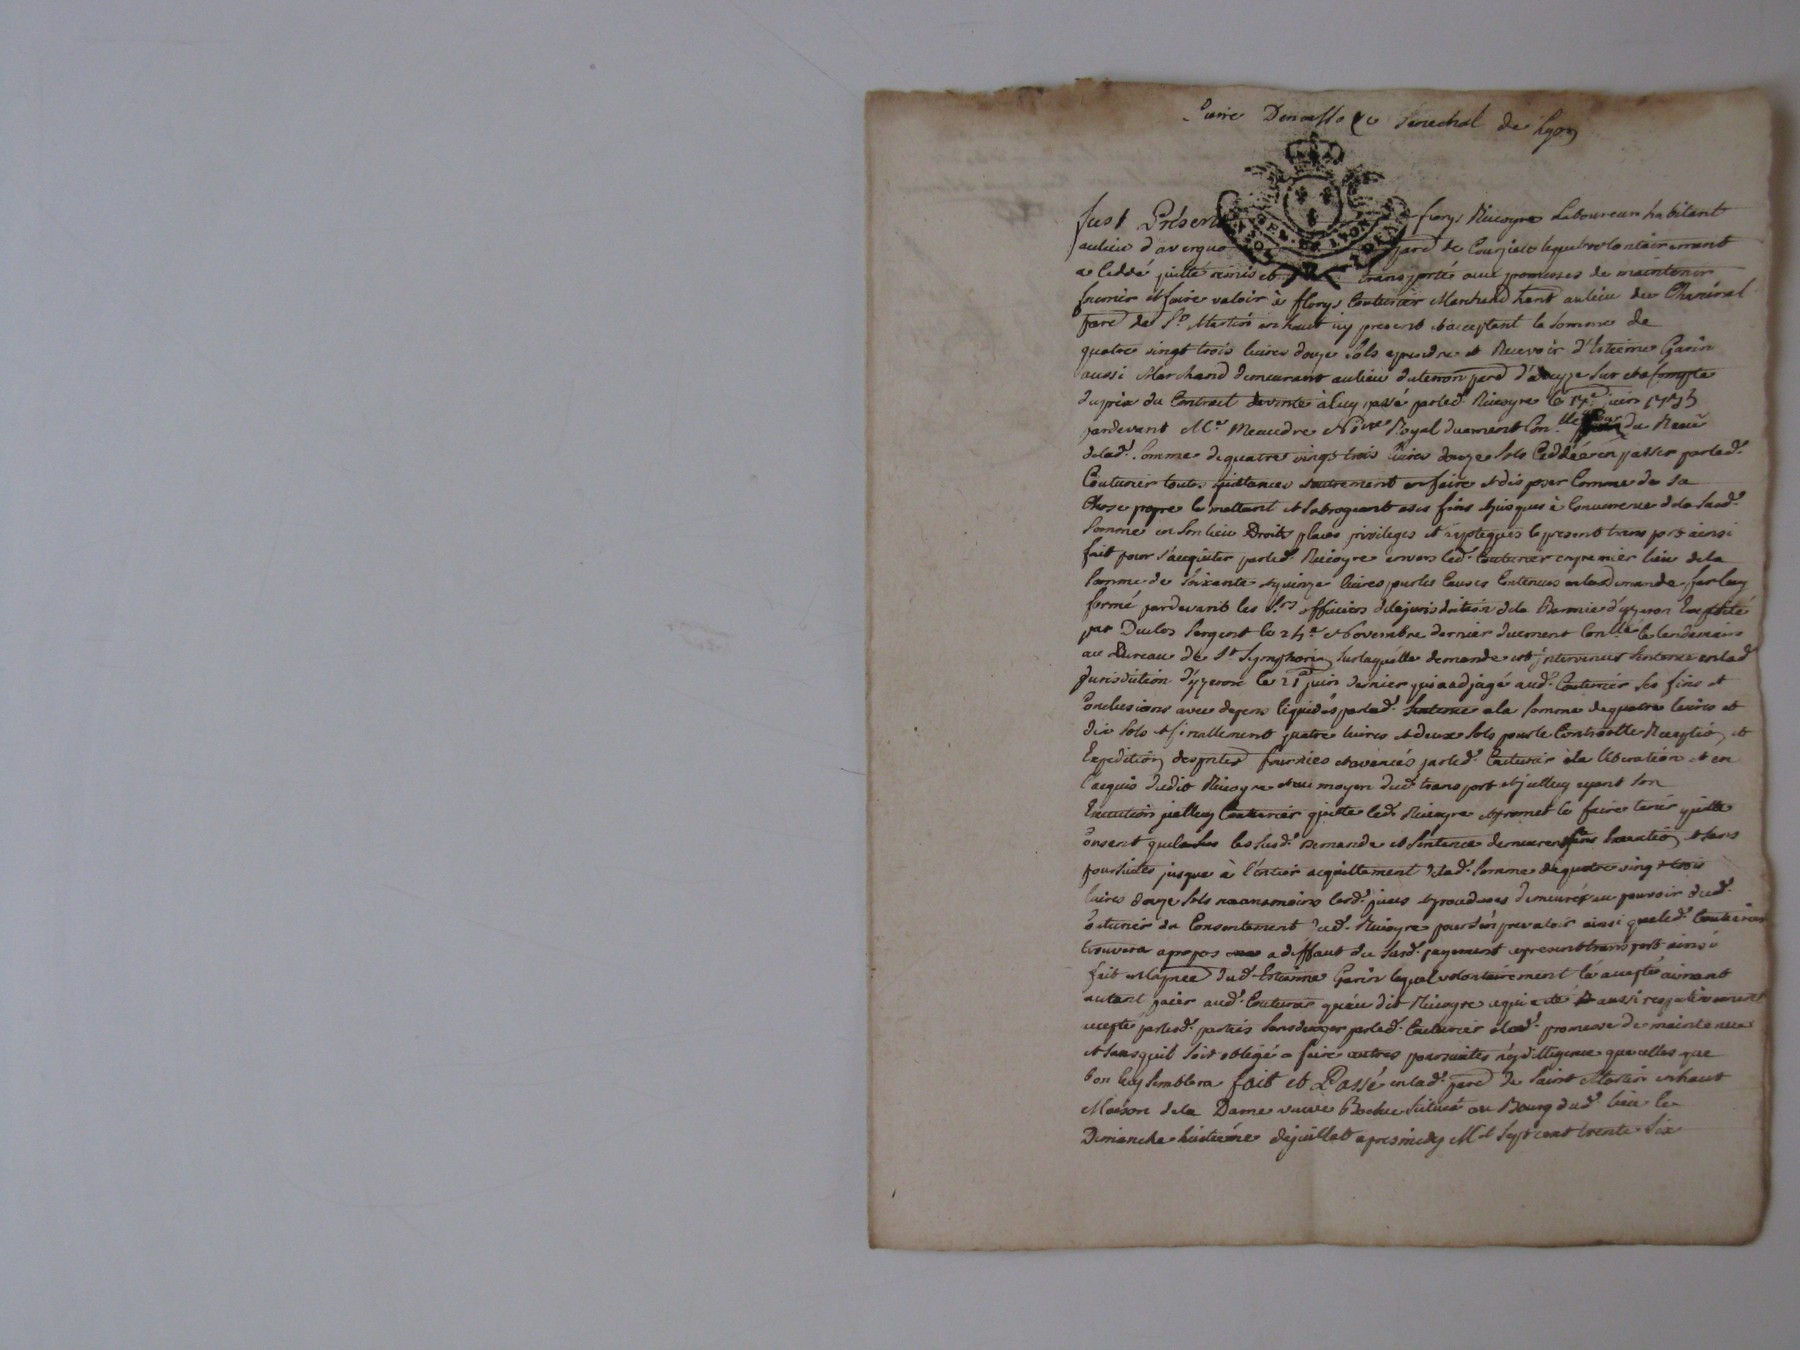 Sénechal de Lyon
fust Présent fleury Rivoyre Laboureur habitant
au lieu d'avergue par.e de Courzieu lequel volontairement
a Ceddé quitté remis et transporté avec promesses de maintenir
fournir et faire valoir à fleury Couturier Marchand hant au lieu du
par.e de St. Martin en haut icy present et acceptant la somme de
quatre vingt trois livres douze sols a prendre et Recevoir d'Estienne Garin
aussi Marchand demeurant au lieu par.e sur et a Compte
du prix du Contrat de vente à luy passé par led. Rivoyre le 17.e juin
pardevant M.e Meaudre No.re Royal duement Con.llé
de lad. somme de quatre vingt trois livres douze sols Ceddée en passer par led.
Couturier toutes quittances autrement en faire et disposer Comme de sa
Chose propre le mettant et subrogeant a ses fins et jusques à Concurrence de la susd.
somme en son lieu Droits places privileges et le present transport ainsi
fait pour s'acquiter par led. Rivoyre envers led. Couturier en premier lieu de la
somme de soixante et quinze livres pour les Causes Contenues en la demande par luy
formé pardevant les S.rs officiers de la jurisdiction de la Baronnie d'yzeron
par Duclos sergent le 24.e Novembre dernier duement Con.llé le lendemain
au Bureau de St. Symphorien sur laquelle demande est intervenue sentence en lad.
jurisdiction d'yzeron le 21 juin dernier qui a adjugé aud. Couturier ses fins et
Conclusions avec depens liquidés par lad. sentence a la somme de quatre livres et
dix sols et finallement quatre livres et deux sols pour le Controlle Reception et
Expedition des p.ntes fournies et avancés par led. Couturier à la liberation et en
l'acquis dudit Rivoyre et au moyen dud. transport et icelluy ayant son
Execution icelluy Couturier quitte led. Rivoyre et promet le faire tenir quitte
Consent que les susd. demande et sentence demeurent sans Execution et sans
poursuites jusque à l'entier acquittement de lad. somme de quatre vingt trois
livres douze sols neanmoins lesd. pieces et procedures au pouvoir dud.
Couturier du Consentement dud. Rivoyre pour s'en prevaloir ainsi que led. Couturier
trouvera a propos a deffaut du susd. payement le present transport ainsi
fait en la p.nce dud. Estienne Garin lequel volontairement l'a accepté aimant
autant paier aud. Couturier qu'au dit Rivoyre ce qui a été aussi respectivement
accepté par lesd. parties sans deroger par led. Couturier à lad. promesse de maintenue
et sans qu'il soit obligé a faire autres poursuites ny dilligence que celles que
bon luy semblera fait et Passé en lad. par.e de Saint Martin en haut
Maison de la Dame veuve située au Bourg dud. lieu le
Dimanche huitième de juillet apres midy Mil sept cent trente six